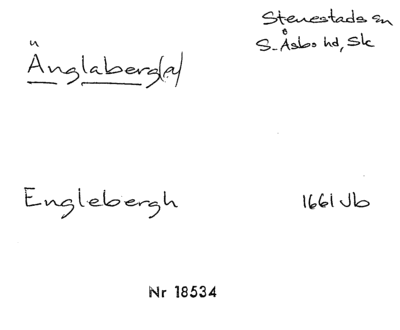 Stenestads sn
S. Åsbo hd, Sk
Änglaberg(a)
Englebergh
1661 Jb
Nr 18534